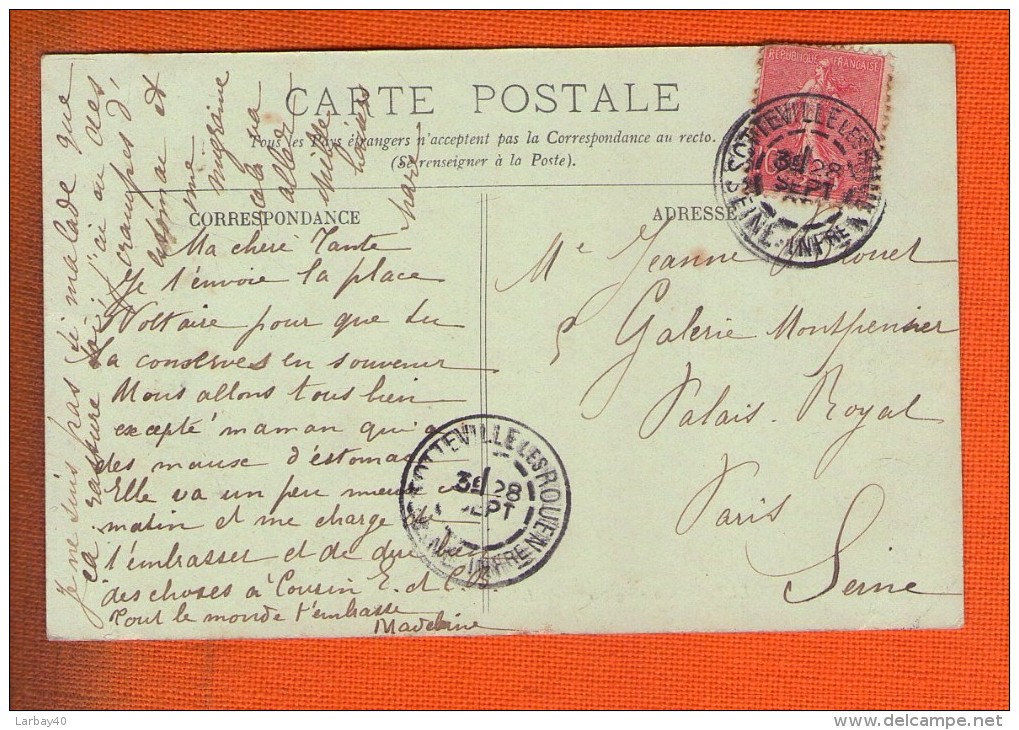 REPUBLIQUE FRANÇAISE
CARTE POSTALE
Tous les Pays étrangers n'acceptent pas la Correspondance au recto.
(Se renseigner à la Poste).
CORRESPONDANCE
ADRESSE
SOTTEVILLE LES ROUEN
3E 28
SEPT
SEINE-INFRE
Ma chere Tante
Je t'envoie la place
Voltaire pour que tu
la conserves en souvenir
Nous allons tous bien
excepté maman qui a
des maux d'estomac
Elle va un peu mieux ce
matin et me charge de
t'embrasser et de dire bien
des choses à Cousin E. et C.
Tout le monde t'embrasse
Madeleine
Je ne suis pas si malade que
ça rassure toi j'ai eu des
crampes d'
estomac et
une
migraine
cela va
aller
mille
baisers
Me Jeanne
Galerie Montpensier
Palais-Royal
Paris
Seine
SOTTEVILLE LES ROUEN
3E 28
SEPT
SEINE-INFRE
Larbay40
www.delcampe.net